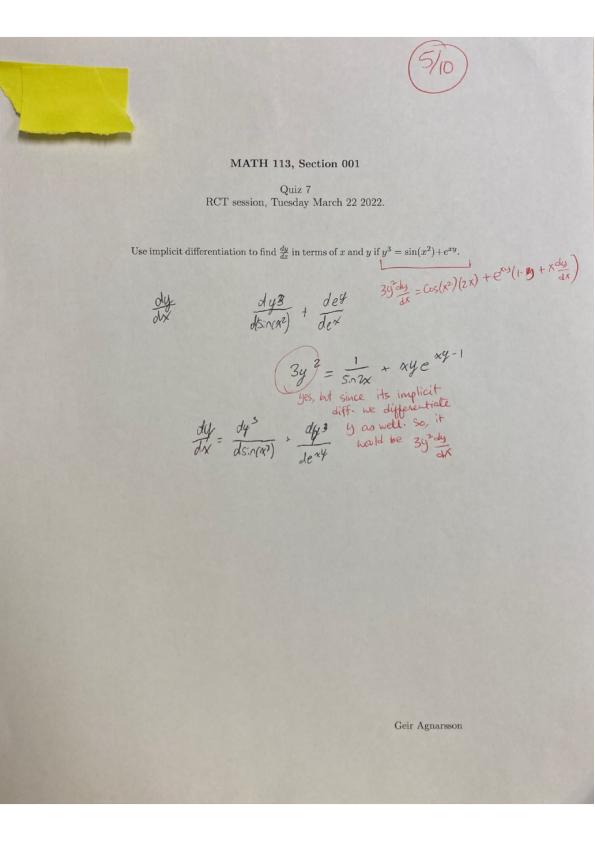 5/10
MATH 113, Section 001
Quiz 7
RCT session, Tuesday March 22 2022.
Use implicit differentiation to find dy/dx in terms of x and y if y³ = sin(x²)+eˣʸ.
3y² dy/dx = cos(x²)(2x) + eˣʸ(1·y + x dy/dx)
dy/dx dy3/dsin(x²) + deʸ/deˣ
3y² = 1/sin2x + xye^(xy-1)
yes, but since its implicit
diff. we differentiate
y as well. So, it
would be 3y² dy/dx
dy/dx = dy³/dsin(x²) + dy³/deˣʸ
Geir Agnarsson